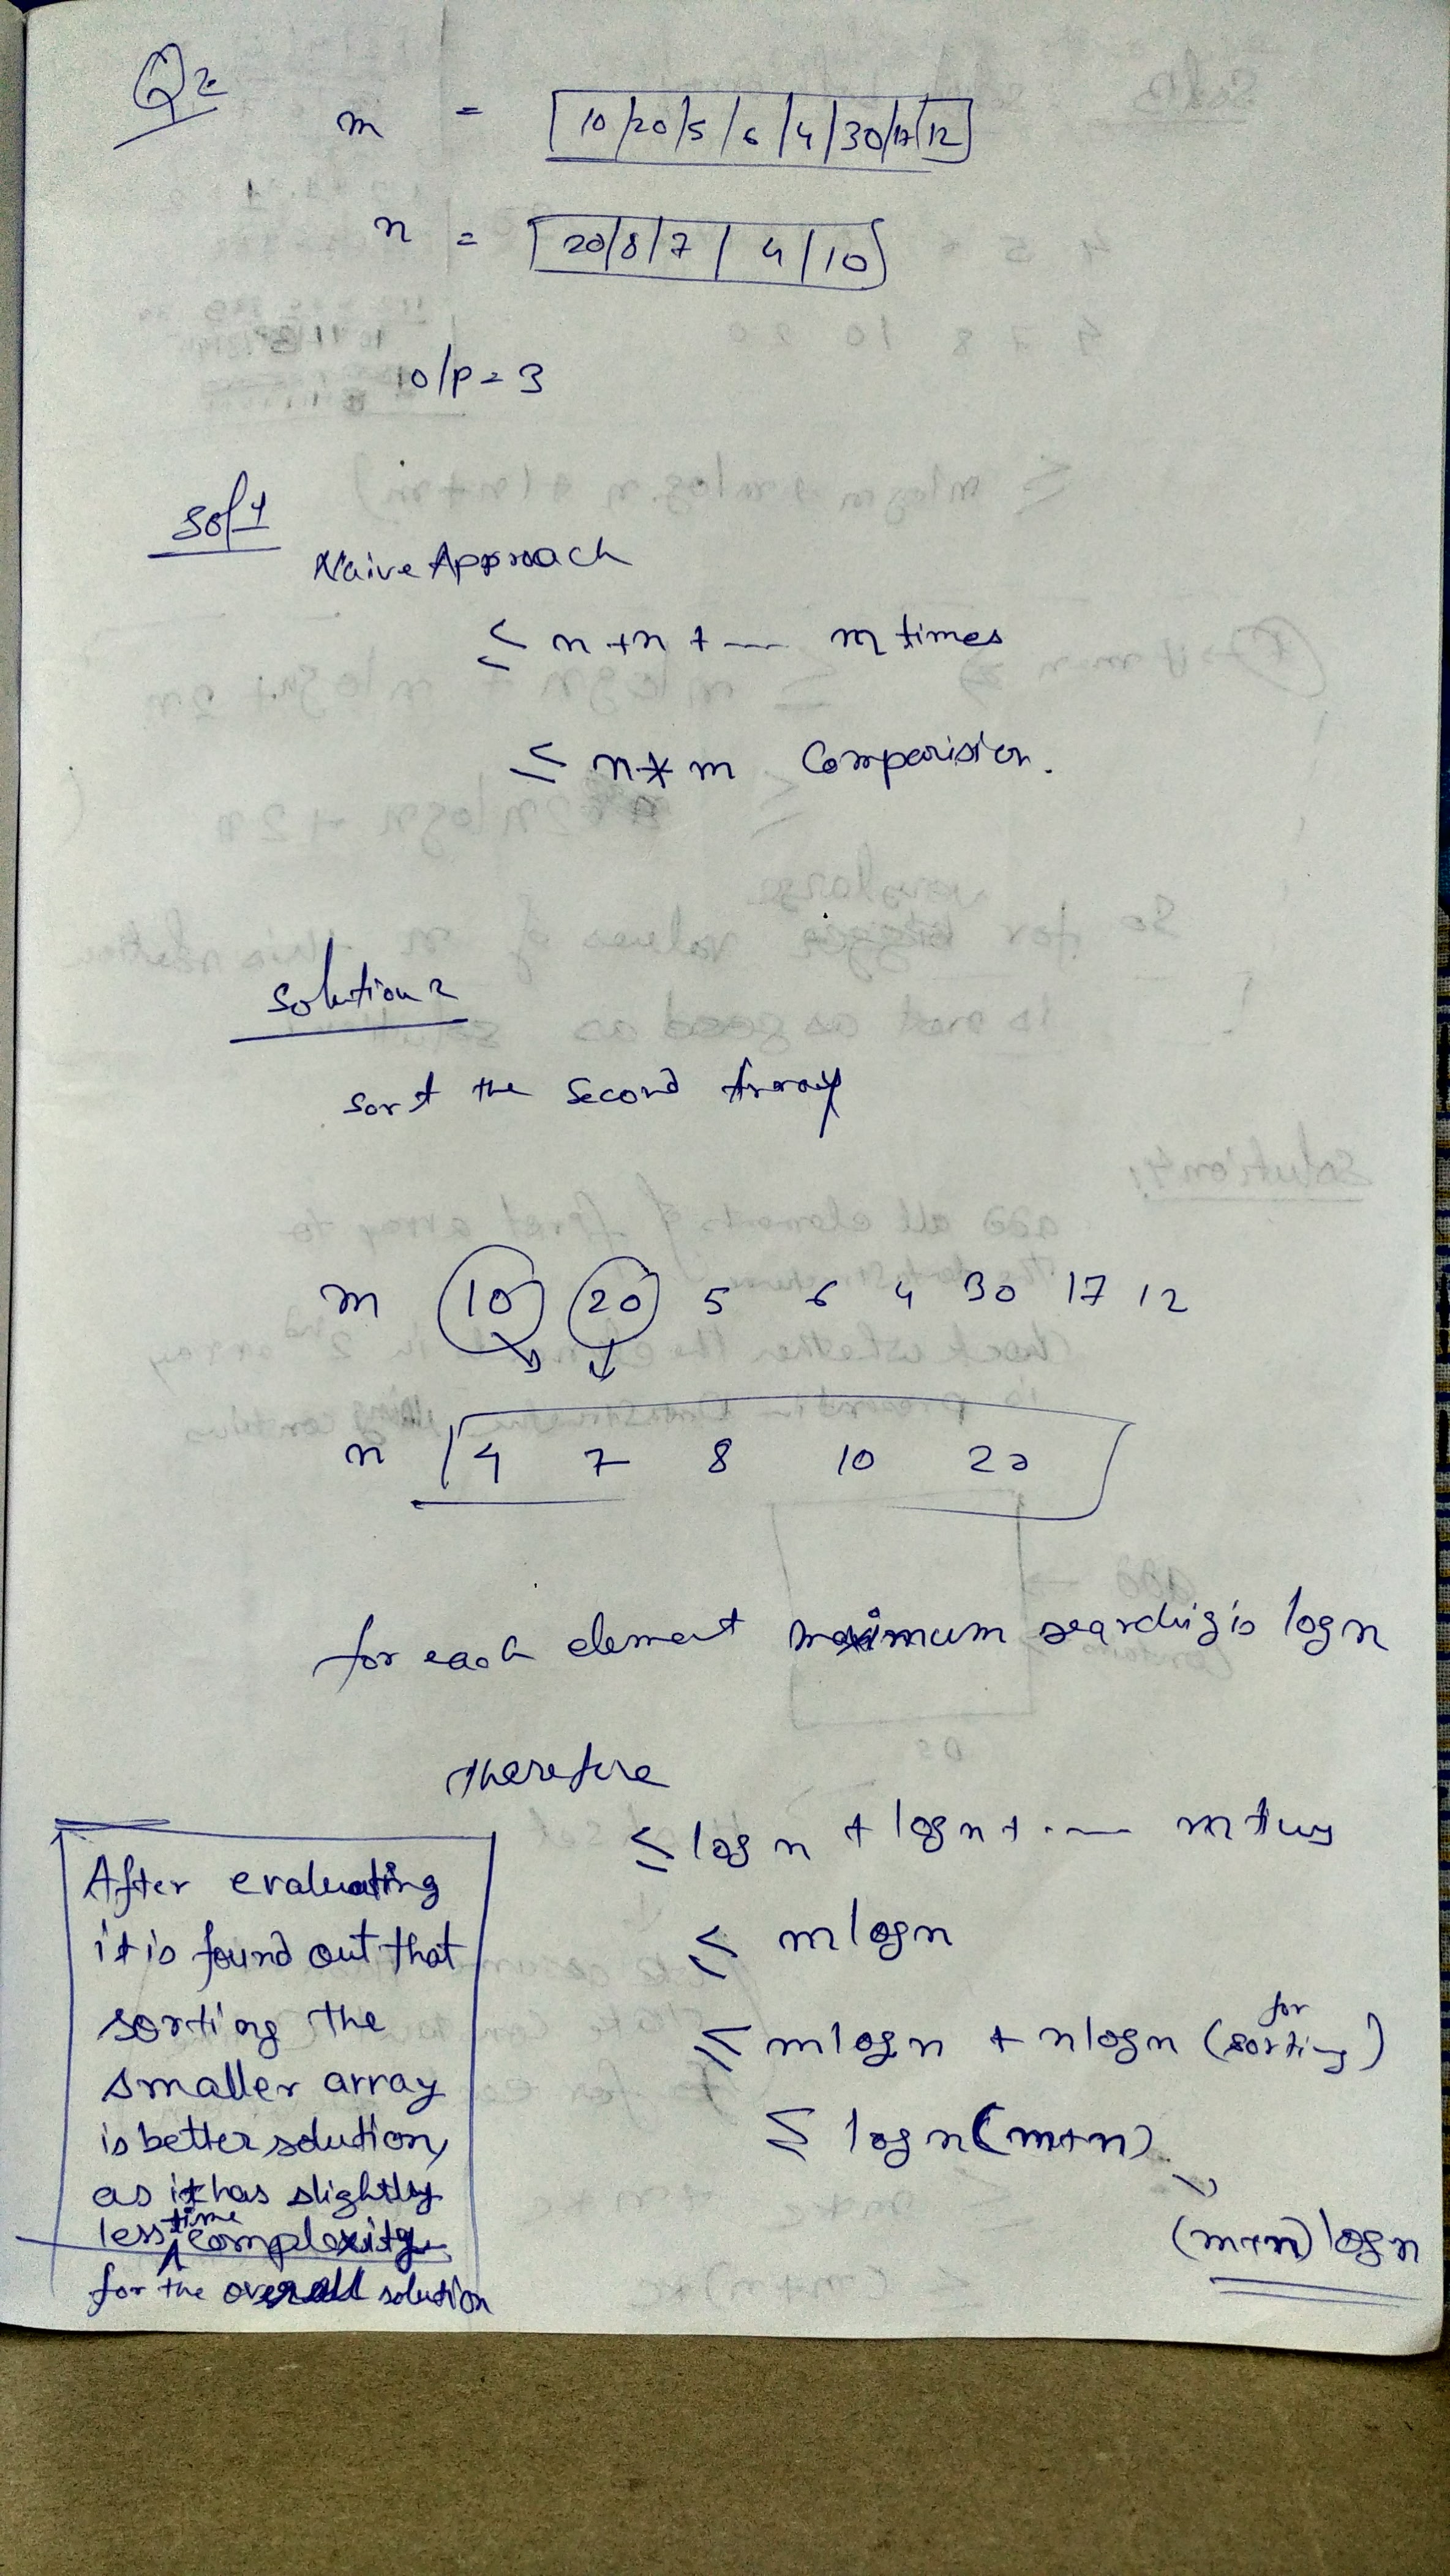 Q2
m = [10|20|5|6|4|30|17|12]
n = [20|8|7|4|10]
o/p = 3
Sol 1
Naive Approach
≤ n + n + --- m times
≤ n * m Comparision.
Solution 2
Sort the Second Array
m 10 20 5 6 4 30 17 12
n 4 7 8 10 20
for each element maximum searching is log n
Therefore
≤ log n + log n + ---
≤ m log n
≤ m log n + n log n (for sorting)
≤ log n (m+n)
(m+n) log n
After evaluating
it is found out that
sorting the
smaller array
is better solution,
as it has slightly
less time complexity
for the overall solution